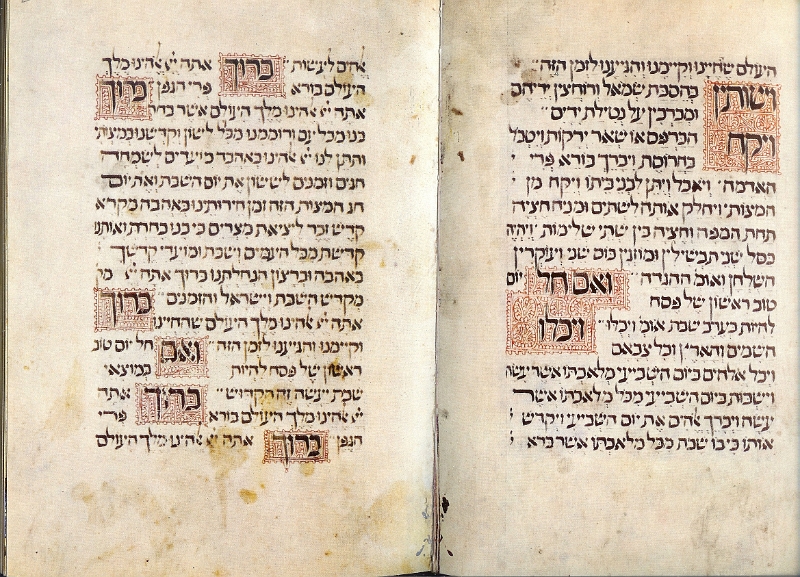 העולם שהחיינו וקיימנו והגיענו לזמן הזה
ושותין בהסבת שמאל ורוחצין ידיהם
ומברכין על נטילת ידים
ויקח הכרפס או שאר ירקות ויטבל
בחרוסת ויברך בורא פרי
האדמה ויאכל ויתן לבני ביתו ויקח מן
המצות ויחלק אותה לשתים ומניח חציה
תחת המפה וחציה בין שתי שלימות ויהיה
בסל שני תבשילין ומוזגין כוס שני ועוקרין
השלחן ואומ ההגדה ואם חל יום
טוב ראשון של פסח
להיות בערב שבת אומ ויכלו ויכלו
השמים והארץ וכל צבאם
ויכל אלהים ביום השביעי מלאכתו אשר עשה
וישבות ביום השביעי מכל מלאכתו אשר
עשה ויברך אהים את יום השביעי ויקדש
אותו כי בו שבת מכל מלאכתו אשר ברא
אהים לעשות ברוך אתה יי אהינו מלך
העולם בורא פרי הגפן ברוך
אתה יי אהינו מלך העולם אשר בחר
בנו מכל עם ורוממנו מכל לשון וקדשנו במצותיו
ותתן לנו יי אהינו באהבה מועדים לשמחה
חגים וזמנים לששון את יום השבת ואת יום
חג המצות הזה זמן חירותינו באהבה מקרא
קדש זכר ליציאת מצרים כי בנו בחרת ואותנו
קדשת מכל העמים ושבת ומועדי קדשך
באהבה וברצון הנחלתנו ברוך אתה יי
מקדש השבת וישראל והזמנים ברוך
אתה יי אהינו מלך העולם שהחיינו
וקיימנו והגיענו לזמן הזה ואם חל יום טוב
ראשון של פסח להיות במוצאי
שבת יעשה זה הקדוש ברוך אתה
יי אהינו מלך העולם בורא פרי
הגפן ברוך אתה יי אהינו מלך העולם